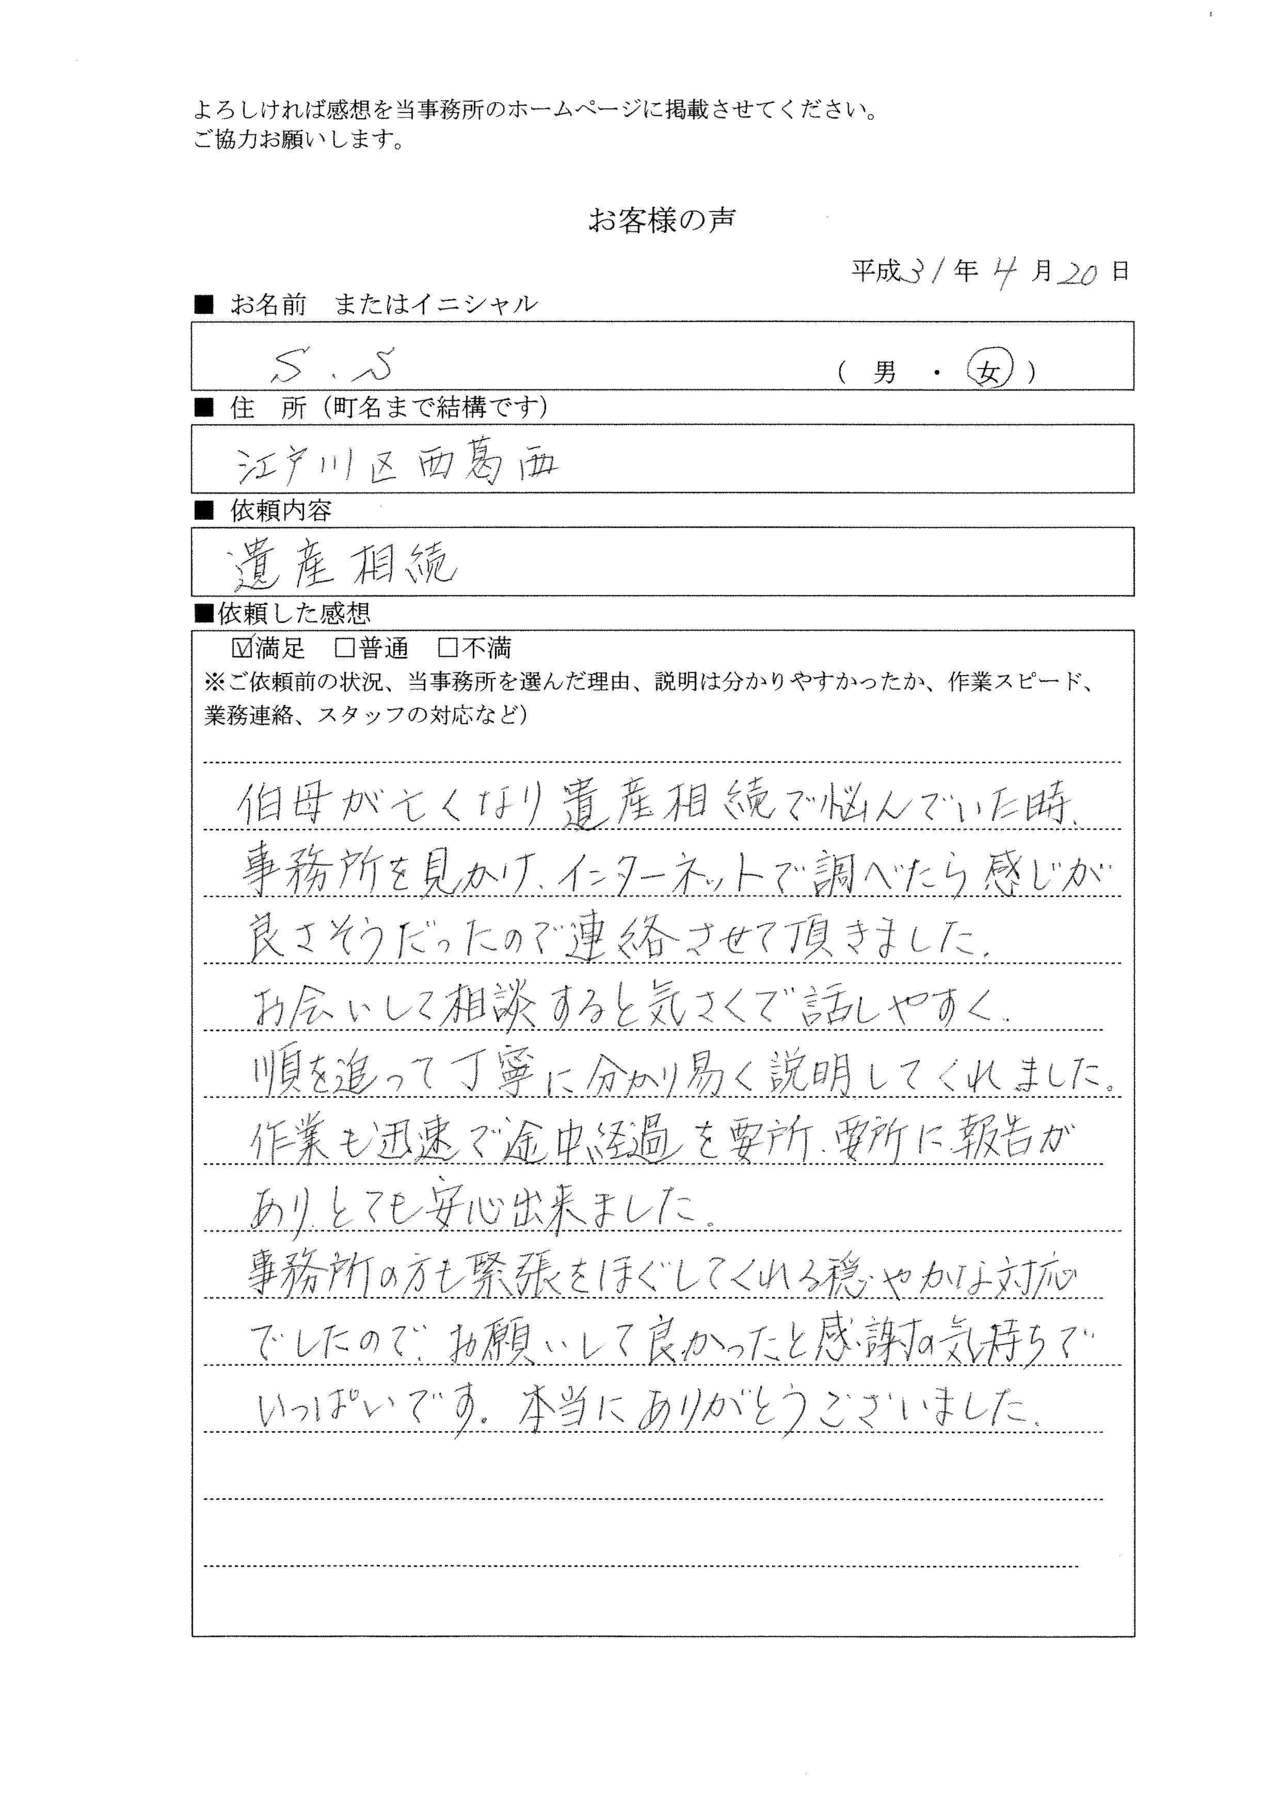 よろしければ感想を当事務所のホームページに掲載させてください。
ご協力お願いします。
お客様の声
平成31年4月20日
■ お名前　またはイニシャル
S.S （ 男 ・ 女 ）
■ 住　所（町名まで結構です）
江戸川区西葛西
■ 依頼内容
遺産相続
■依頼した感想
☑満足　□普通　□不満
※ご依頼前の状況、当事務所を選んだ理由、説明は分かりやすかったか、作業スピード、
業務連絡、スタッフの対応など）
伯母が亡くなり遺産相続で悩んでいた時、
事務所を見かけ、インターネットで調べたら感じが
良さそうだったので連絡させて頂きました。
お会いして相談すると気さくで話しやすく、
順を追って丁寧に分かり易く説明してくれました。
作業も迅速で途中経過を要所、要所に報告が
あり、とても安心出来ました。
事務所の方も緊張をほぐしてくれる穏やかな対応
でしたので、お願いして良かったと感謝の気持ちで
いっぱいです。本当にありがとうございました。